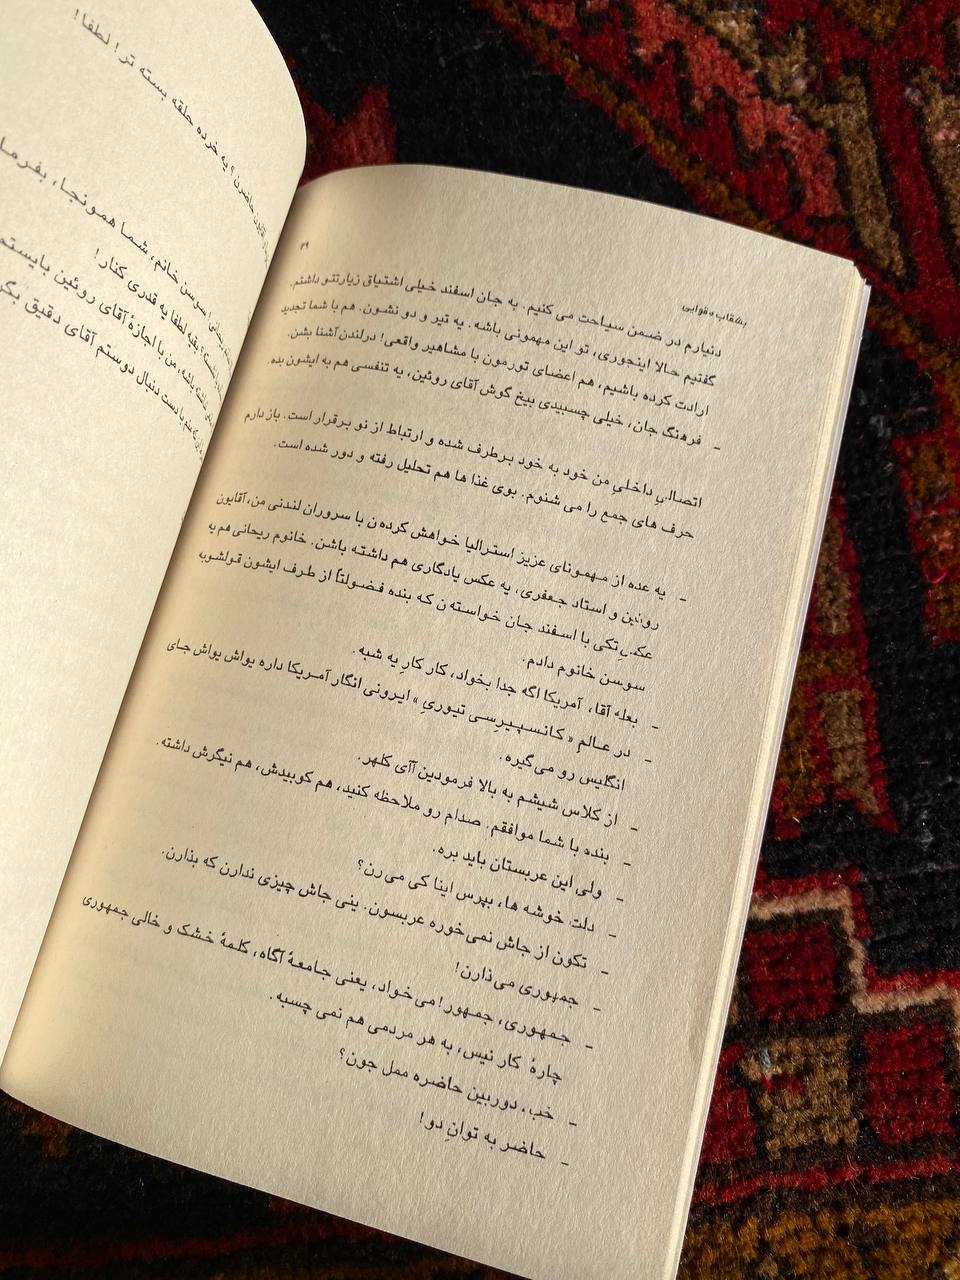 بشقاب مقوایی
۲۹
دنیارم در ضمن سیاحت می کنیم. به جان اسفند خیلی اشتیاق زیارتتو داشتم.
گفتیم حالا اینجوری، تو این مهمونی باشه. یه تیر و دو نشون. هم با شما تجدید
ارادت کرده باشیم، هم اعضای تورمون با مشاهیر واقعی! درلندن آشنا بشن.
- فرهنگ جان، خیلی چسبیدی بیخ گوش آقای روئین، یه تنفسی هم به ایشون بده.
اتصالیِ داخلیِ من خود به خود برطرف شده و ارتباط از نو برقرار است. باز دارم
حرف های جمع را می شنوم. بوی غذا ها هم تحلیل رفته و دور شده است.
- یه عده از مهمونای عزیز استرالیا خواهش کرده ن با سروران لندنی من، آقایون
روئین و استاد جعفری، یه عکس یادگاری هم داشته باشن. خانوم ریحانی هم یه
عکسِ تکی با اسفند جان خواسته ن که بنده فضولتاً از طرف ایشون قولشوبه
سوسن خانوم دادم.
- بعله آقا، آمریکا اگه جدا بخواد، کار کارِ یه شبه.
- در عالمِ « کانسپیرِسی تیوریِ » ایرونی انگار آمریکا داره یواش یواش جای
انگلیس رو می گیره.
- از کلاس شیشم به بالا فرمودین آآی کلهر.
- بنده با شما موافقم. صدام رو ملاحظه کنید، هم کوبیدش، هم نیگرش داشته.
- ولی این عربستان باید بره.
- دلت خوشه ها، بپرس اینا کی می رن؟
- تکون از جاش نمی خوره عربسون. ینی جاش چیزی ندارن که بذارن.
- جمهوری می ذارن!
- جمهوری، جمهور! می خواد، یعنی جامعهٔ آگاه، کلمهٔ خشک و خالی جمهوری
چارهٔ کار نیس، به هر مردمی هم نمی چسبه.
- خب، دوربین حاضره ممل جون؟
- حاضر به توانِ دو!
حاضرن؟ یه خرده حلقه بسته تر! لطفا!
سوسن خانم، شما همونجا، بفرما
لطفا یه قدری کنار!
من با اجازهٔ آقای روئین بایستم
دست دنبال دوستم آقای دقیق بگر